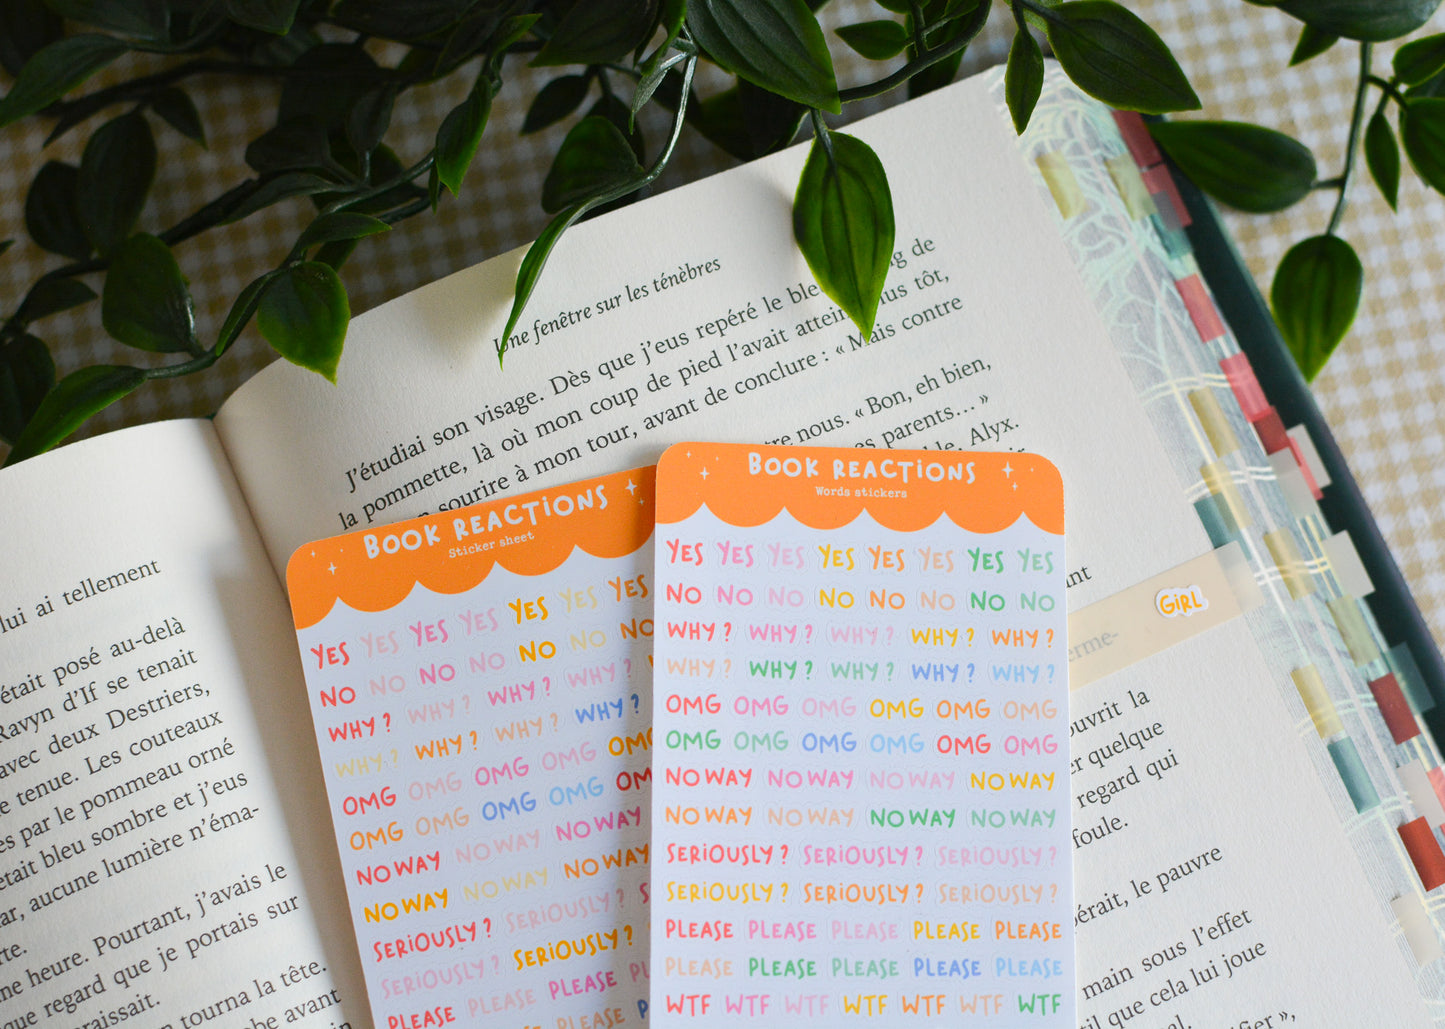 lui ai tellement
était posé au-delà
Ravyn d'If se tenait
avec deux Destriers,
tenue. Les couteaux
par le pommeau orné
était bleu sombre et j'eus
aucune lumière n'éma-
heure. Pourtant, j'avais le
regard que je portais sur
tourna la tête.
avant
Une fenêtre sur les ténèbres
J'étudiai son visage. Dès que j'eus repéré le de
la pommette, là où mon coup de pied l'avait tôt,
sourire à mon tour, avant de conclure : « Mais contre
nous. « Bon, eh bien,
parents… »
Alyx.
GiRL
la
quelque
regard qui
foule.
le pauvre
main sous l'effet
que cela lui joue
BOOK REACTiONS
Sticker sheet
YES YES YES YES YES YES YES
NO NO NO NO NO NO NO
WHY ? WHY ? WHY ? WHY ?
WHY ? WHY ? WHY ? WHY ?
OMG OMG OMG OMG OMG
OMG OMG OMG OMG OMG
NO WAY NO WAY NO WAY
NO WAY NO WAY NO WAY
SERiOUSLY ? SERiOUSLY ?
SERiOUSLY ? SERiOUSLY ?
PLEASE PLEASE PLEASE
BOOK REACTiONS
Words stickers
YES YES YES YES YES YES YES YES
NO NO NO NO NO NO NO NO
WHY ? WHY ? WHY ? WHY ? WHY ?
WHY ? WHY ? WHY ? WHY ? WHY ?
OMG OMG OMG OMG OMG OMG
OMG OMG OMG OMG OMG OMG
NO WAY NO WAY NO WAY NO WAY
NO WAY NO WAY NO WAY NO WAY
SERiOUSLY ? SERiOUSLY ? SERiOUSLY ?
SERiOUSLY ? SERiOUSLY ? SERiOUSLY ?
PLEASE PLEASE PLEASE PLEASE PLEASE
PLEASE PLEASE PLEASE PLEASE PLEASE
WTF WTF WTF WTF WTF WTF WTF